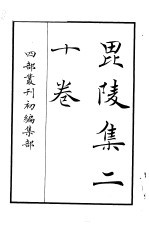 毘陵集二
十卷
四部叢刊初編集部